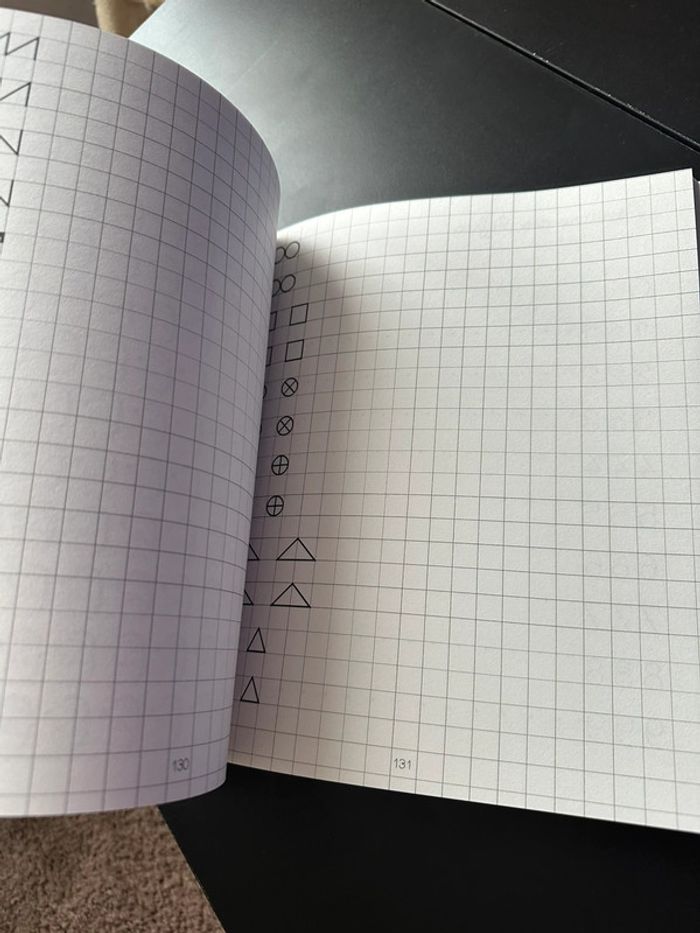 130
131